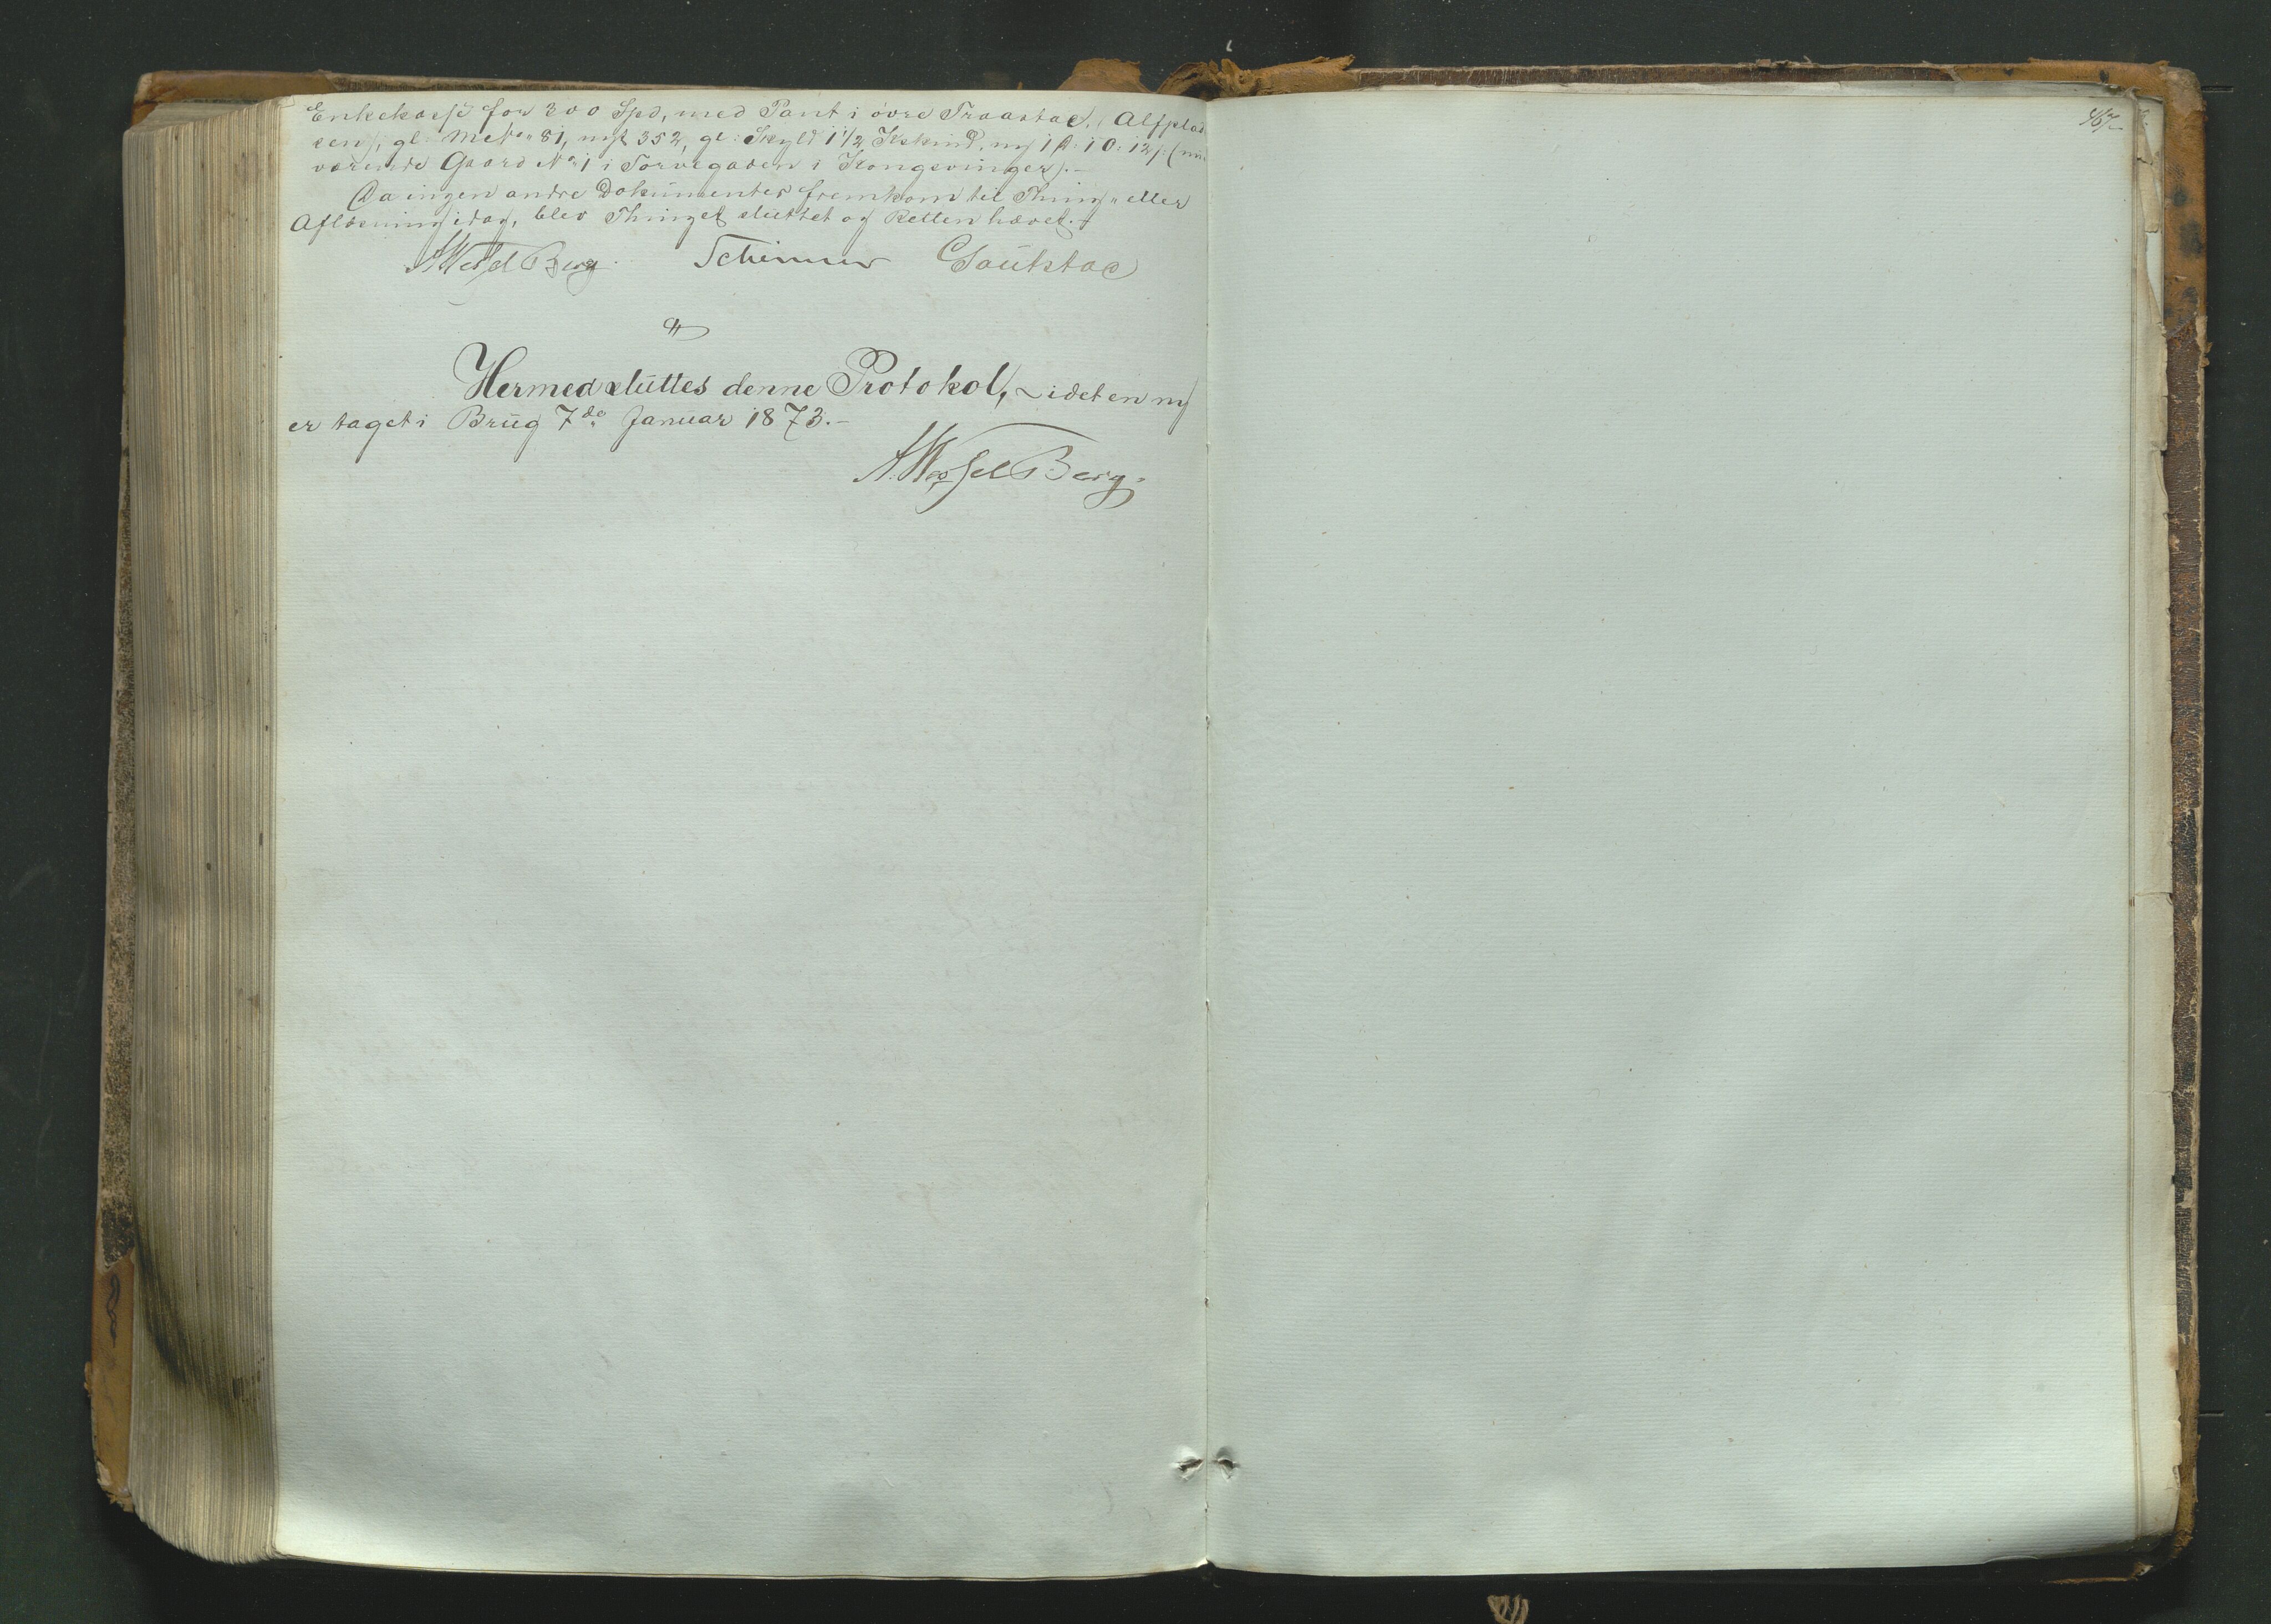 Enkekasse for 300 Spd, med Pant i øvre Traastad, (Alfplad-
sen), gl. MatNo 81, nyt 352, gl: Skyld 1 1/2 Kskind, ny 1 10: 12
værende Gaard No 1 i Torvegaden i Kongsvinger).-
Da ingen andre Dokumenter fremkom til Thing- eller
Afløsning idag, blev Thinget sluttet og Retten hævet.-
A. Wessel Berg. Schirmer
Hermed sluttes denne Protokol, ~ idet en ny
er taget i Brug 7de Januar 1873.-
A. Wessel Berg.
467